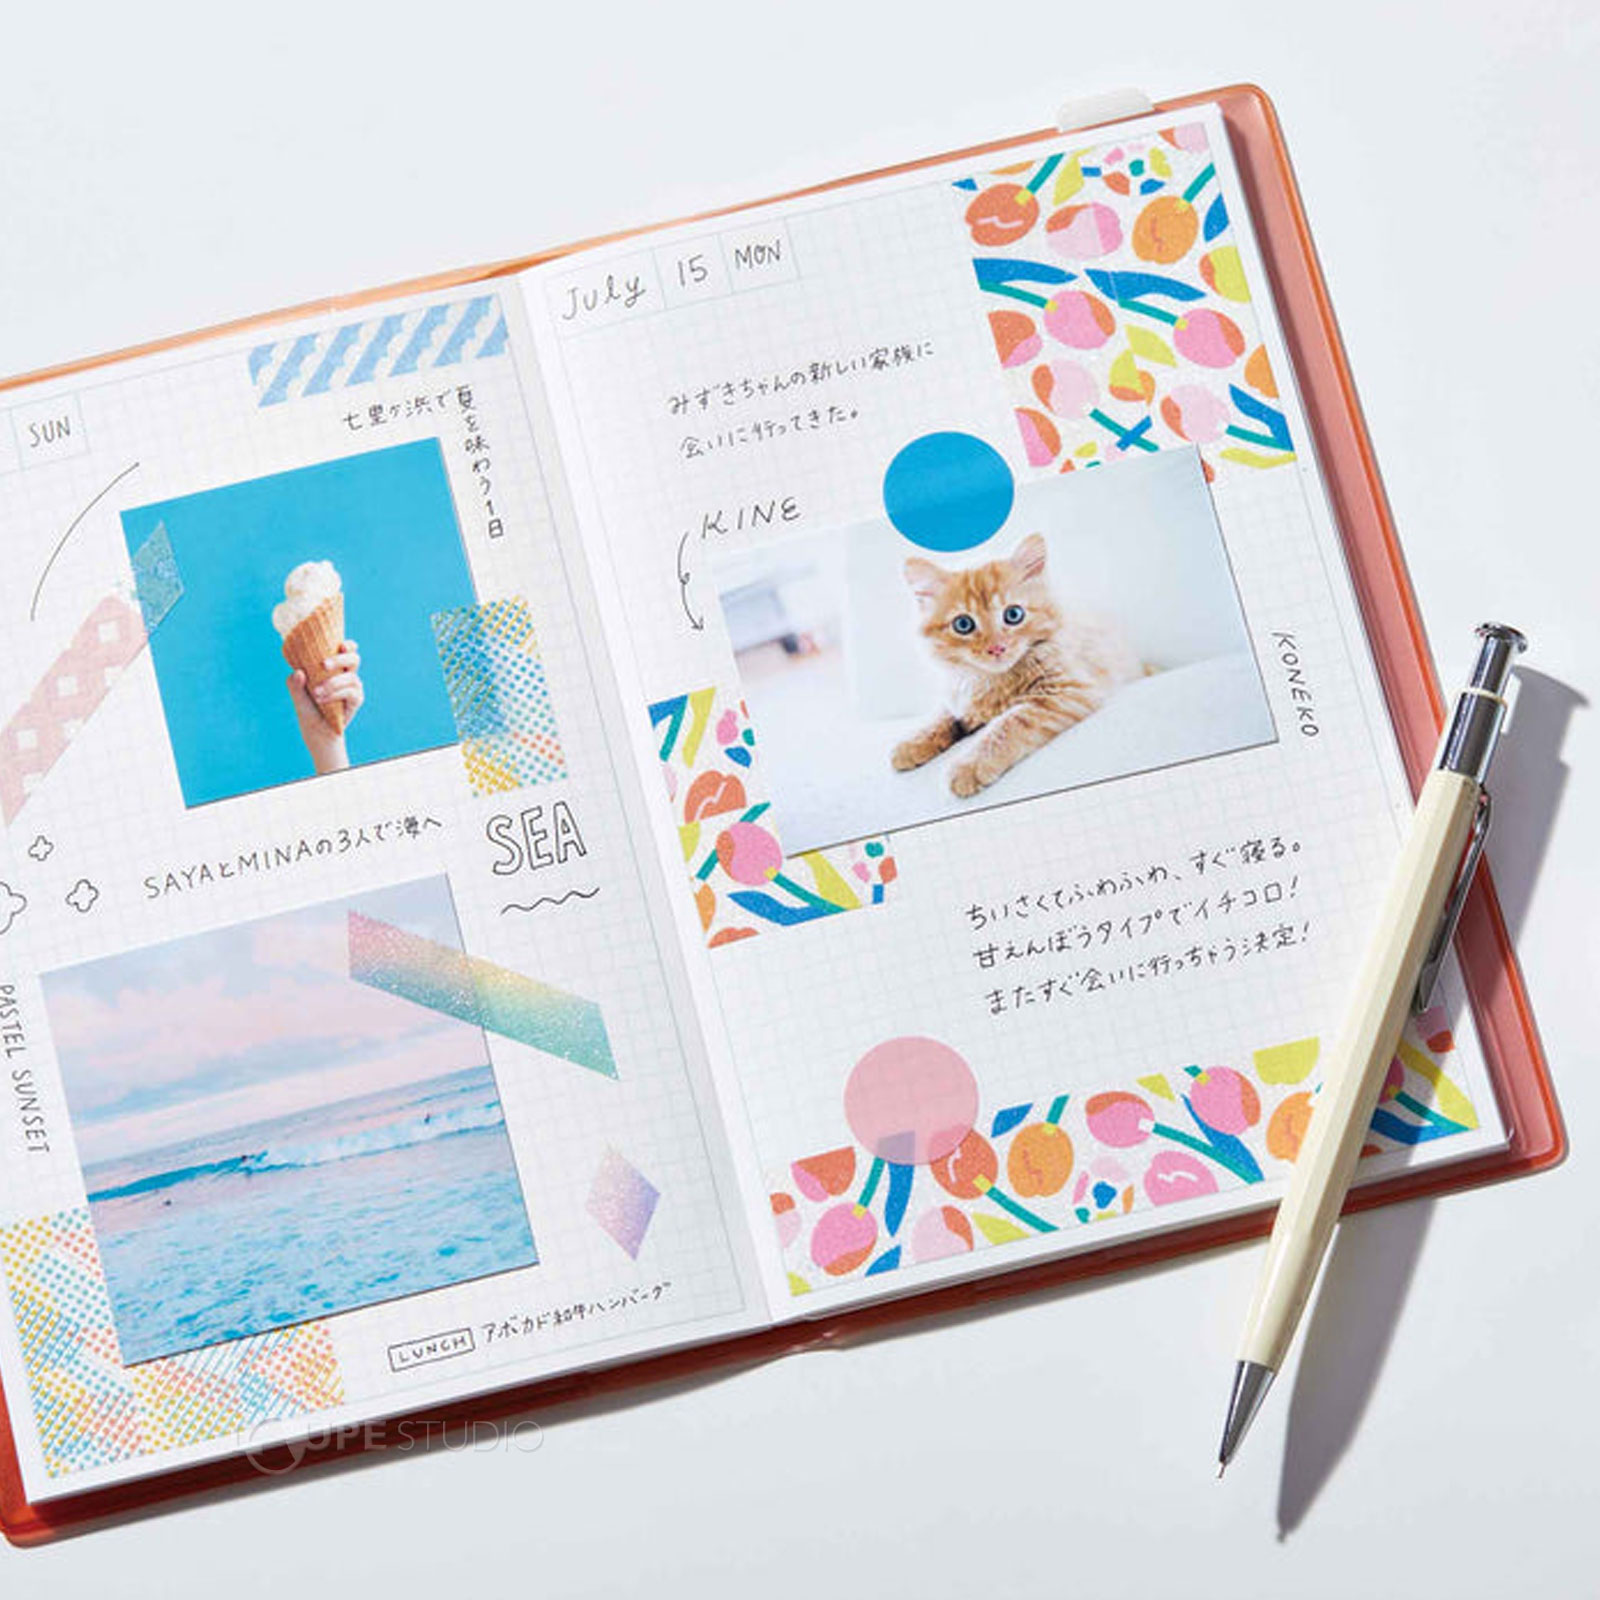 SUN
七里ヶ浜で夏を味わう1日
SAYAとMINAの3人で海へ
SEA
PASTEL SUNSET
LUNCH アボカド和牛ハンバーグ
July 15 MON
みずきちゃんの新しい家族に
会いに行ってきた。
KINE
KONEKO
ちいさくてふわふわ、すぐ寝る。
甘えんぼうタイプでイチコロ!
またすぐ会いに行っちゃう決定!
LOUPE STUDIO